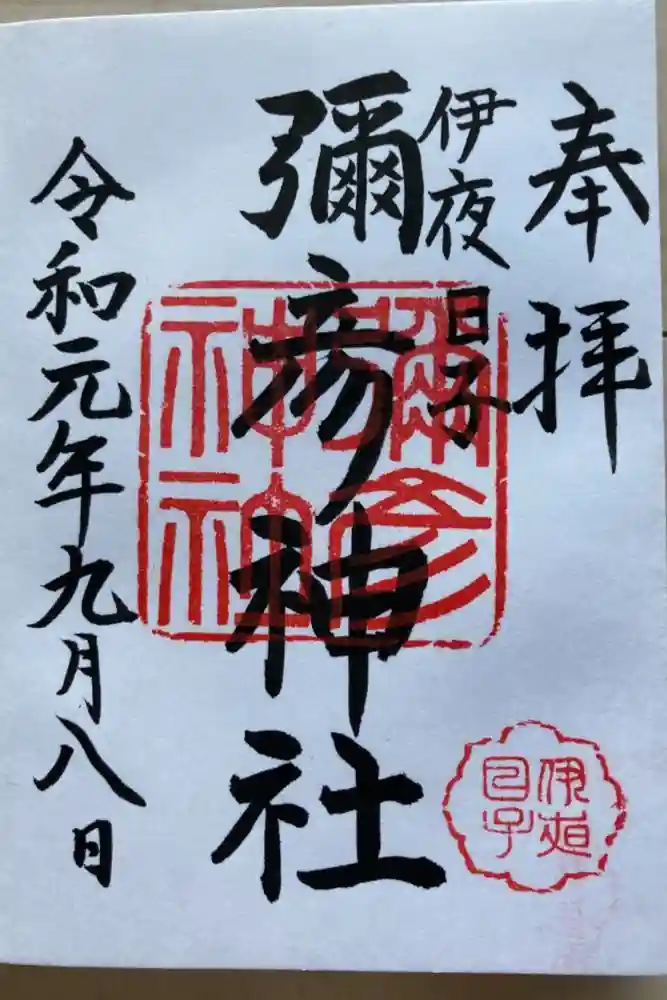 奉拝
伊夜日子
彌彦神社
令和元年九月八日
彌彦
神社
伊夜
日子